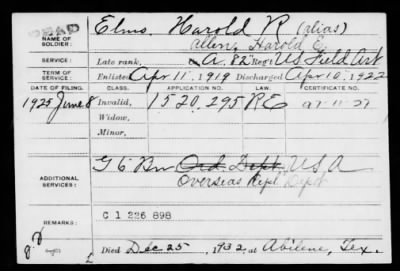 DEAD
NAME OF SOLDIER: Elms, Harold R (alias)
Allen, Harold E.
SERVICE: Late rank, A. 82" Reg't US Field Art
TERM OF SERVICE: Enlisted Apr 11, 1919 Discharged Apr 10, 1922
DATE OF FILING. CLASS. APPLICATION NO. LAW. CERTIFICATE NO.
1925 June 8 Invalid, 1520,295 RE
Widow,
Minor,
ADDITIONAL SERVICES: Ord. Dept. U.S.A
Overseas Repl Depot
REMARKS: C 1 226 898
Died Dec 25, 1932, at Abilene, Tex.